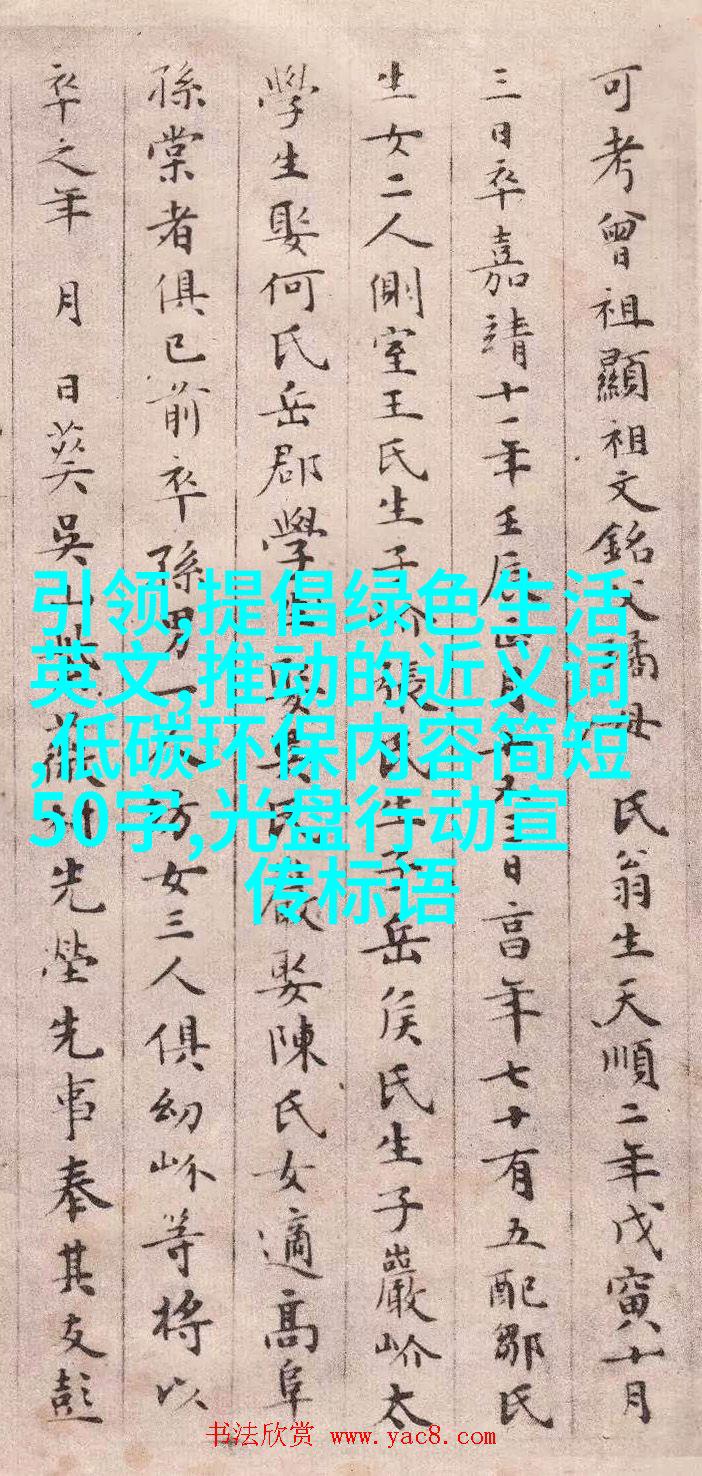 可考曾祖顯祖文銘父璚母 氏翁生天順二年戊寅十月
三日卒嘉靖十一年壬辰正月十九三日高年七十有五配鄒氏
生女二人側室王氏生子岎張氏生子岳侯氏生子巖岎太
學生娶何氏岳郡學生娶吳氏巖娶陳氏女適高阜
孫棠者俱已前卒孫男一人 女三人俱幼岎等將以
卒之年 月 日葬吳山 先塋先事奉其友彭
引领,提倡绿色生活
英文,推动的近义词
,低碳环保内容简短
50字,光盘行动宣
传标语
书法欣赏 www.yac8.com